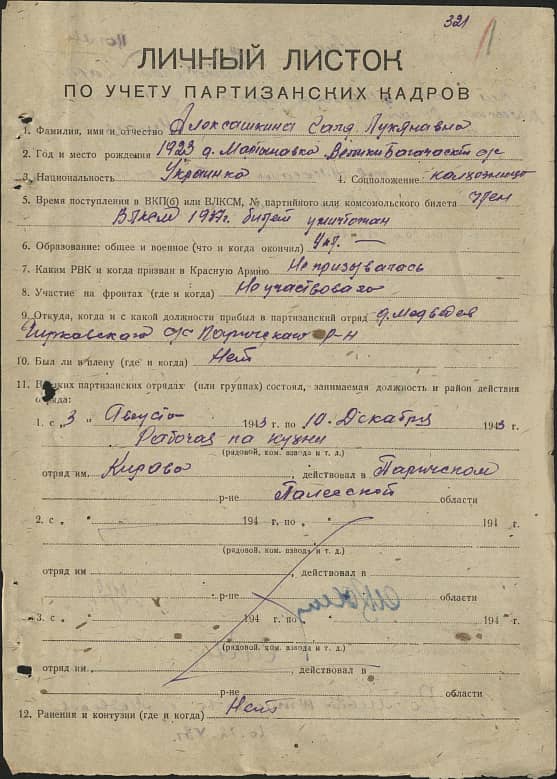 321
ЛИЧНЫЙ ЛИСТОК
ПО УЧЕТУ ПАРТИЗАНСКИХ КАДРОВ
1. Фамилия, имя и отчество Алексашкина Саля Лукянавна
2. Год и место рождения 1923 д. Мартыновка Велики Богачаский с/с
3. Национальность Украинка 4. Соцположение колхозница
5. Время поступления в ВКП(б) или ВЛКСМ, № партийного или комсомольского билета член
Влксм 1937г. билет уничтожан
6. Образование: общее и военное (что и когда окончил) 4 кл. —
7. Каким РВК и когда призван в Красную Армию Не призывалась
8. Участие на фронтах (где и когда) Не участвовала
9. Откуда, когда и с какой должности прибыл в партизанский отряд д. Медведев
Чирковского с/с Паричского Р-Н
10. Был ли в плену (где и когда) Нет
11. В каких партизанских отрядах (или группах) состоял, занимаемая должность и район действия
отряда:
1. с „ 3 " Августа 1943 г. по 10 Декабря 1943 г.
Рабочая на кухни
(рядовой, ком. взвода и т. д.)
отряд им. Кирова, действовал в Паричском
р-не Палеской области
2. с „ 194 г. по 194 г.
(рядовой, ком. взвода и т. д.)
отряд им , действовал в
р-не области
3. с „ 194 г. по 194 г.
(рядовой, ком. взвода и т. д.)
отряд им. , действовал в
р-не области
12. Ранения и контузии (где и когда) Нет